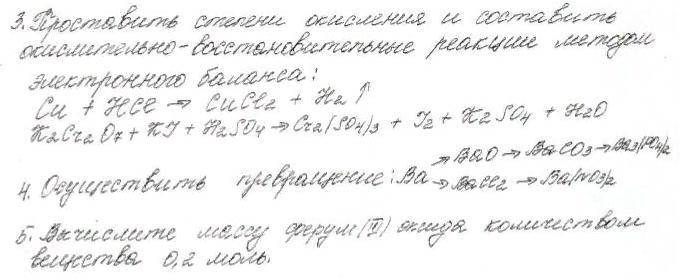 3. Проставить степени окисления и составить
окислительно-восстановительные реакции методом
электронного баланса:
Cu + HCl → CuCl2 + H2↑
K2Cr2O7 + KI + H2SO4 → Cr2(SO4)3 + I2 + K2SO4 + H2O
→ BaO → BaCO3 → Ba3(PO4)2
4. Осуществить превращение: Ba → BaCl2 → Ba(NO3)2
5. Вычислите массу ферум (II) оксида количеством
вещества 0,2 моль.